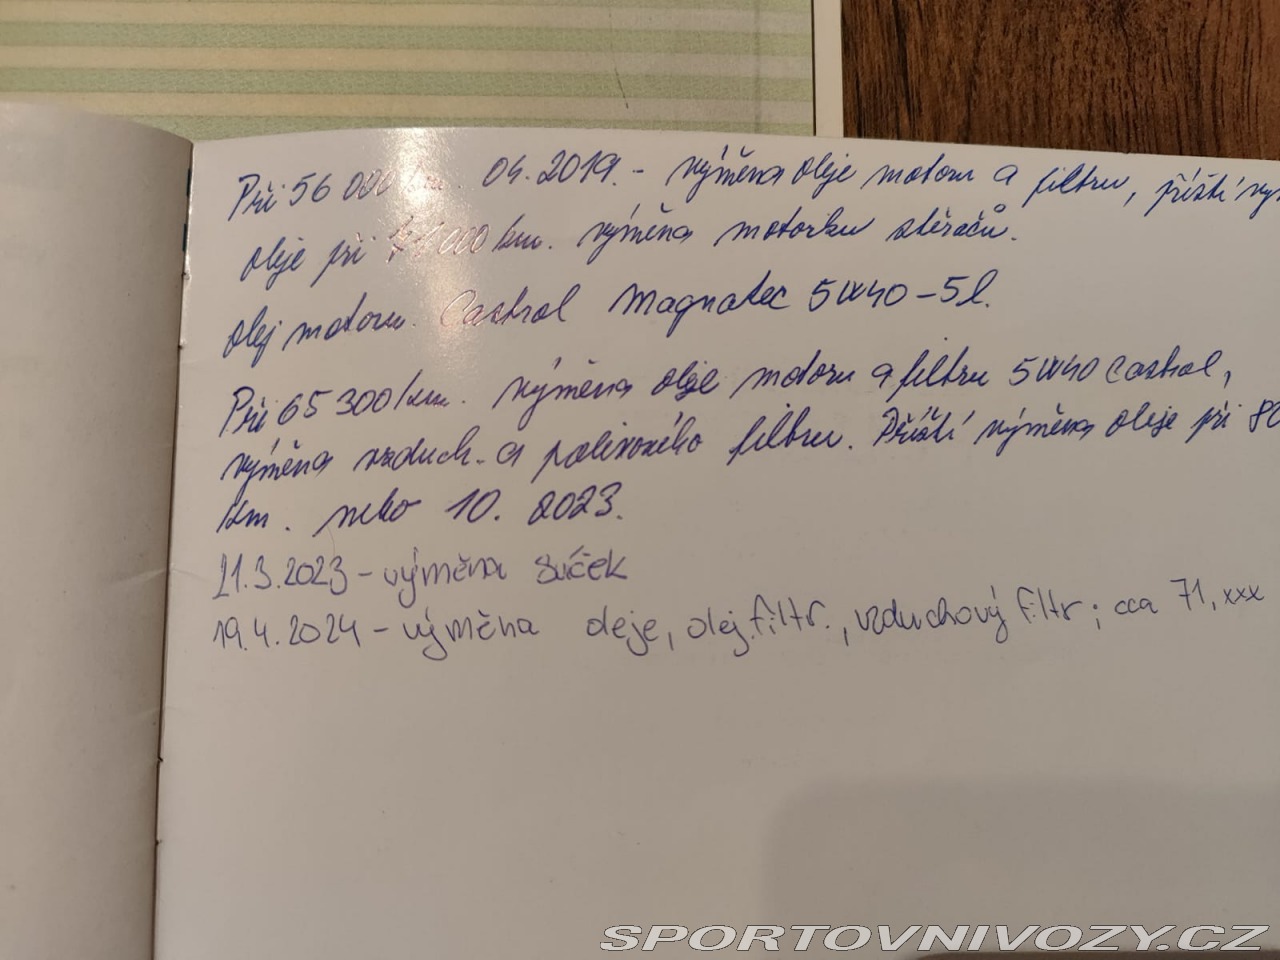 Při 56 000 km. 04.2019. - výměna oleje motoru a filtru, příští vým
oleje při 71 000 km. výměna motorku stěračů.
olej motoru. Castrol Magnatec 5W40 - 5l.
Při 65 300 km. výměna oleje motoru a filtru 5W40 Castrol,
výměna vzduch. a palivového filtru. Příští výměna oleje při 80
km. nebo 10. 2023.
21.3.2023 - výměna svíček
19.4.2024 - výměna oleje, olej.filtr., vzduchový filtr; cca 71,xxx
SPORTOVNIVOZY.CZ